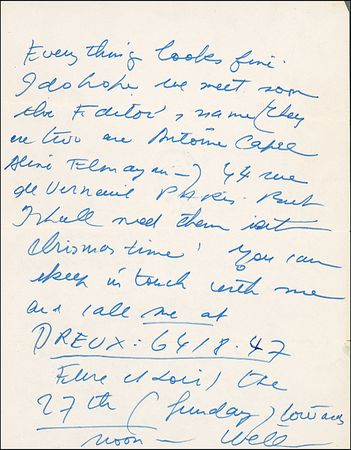 Everything looks fine.
I do hope, we meet soon
the Editor's name (they
are two are Antoine
Aliné Elmayan —) 44 rue
de Verneuil PARIS. But
I shall need them
Chrismas time! You can
keep in touch with me
and call me at
DREUX: 6418.47
Eure et Loir) the
27th (Sunday) towards
noon — Well